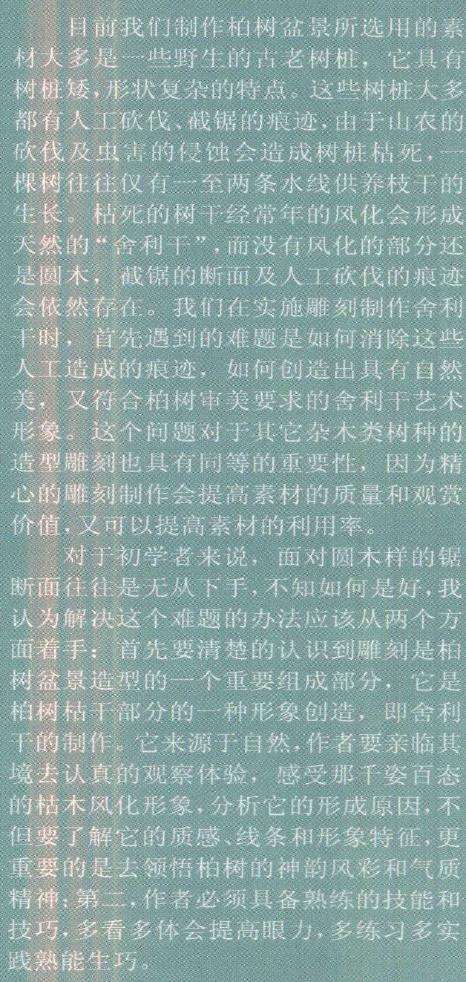 目前我们制作柏树盆景所选用的素
材大多是一些野生的古老树桩，它具有
树桩矮，形状复杂的特点。这些树桩大多
都有人工砍伐、截锯的痕迹，由于山农的
砍伐及虫害的侵蚀会造成树桩枯死，一
棵树往往仅有一至两条水线供养枝干的
生长。枯死的树干经常年的风化会形成
天然的“舍利干”，而没有风化的部分还
是圆木，截锯的断面及人工砍伐的痕迹
会依然存在。我们在实施雕刻制作舍利
干时，首先遇到的难题是如何消除这些
人工造成的痕迹，如何创造出具有自然
美，又符合柏树审美要求的舍利干艺术
形象。这个问题对于其它杂木类树种的
造型雕刻也具有同等的重要性，因为精
心的雕刻制作会提高素材的质量和观赏
价值，又可以提高素材的利用率。
对于初学者来说，面对圆木样的锯
断面往往是无从下手，不知如何是好，我
认为解决这个难题的办法应该从两个方
面着手：首先要清楚的认识到雕刻是柏
树盆景造型的一个重要组成部分，它是
柏树枯干部分的一种形象创造，即舍利
干的制作。它来源于自然，作者要亲临其
境去认真的观察体验，感受那千姿百态
的枯木风化形象，分析它的形成原因，不
但要了解它的质感、线条和形象特征，更
重要的是去领悟柏树的神韵风彩和气质
精神；第二，作者必须具备熟练的技能和
技巧，多看多体会提高眼力，多练习多实
践熟能生巧。